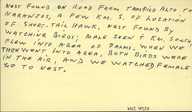 NEST FOUND ON ROAD FROM TAMBITO ALTO TO
NARANJOS, A FEW KM. S. OF LOCATION
OF SHORT TAIL HAWK. NEST FOUND BY
WATCHING BIRDS; MALE SEEN 1 KM. SOUTH,
FLEW INTO AREA OF PALMS. WHEN WE
THEN WENT INTO AREA, BOTH BIRDS WERE
IN THE AIR, AND WE WATCHED FEMALE
GO TO NEST.